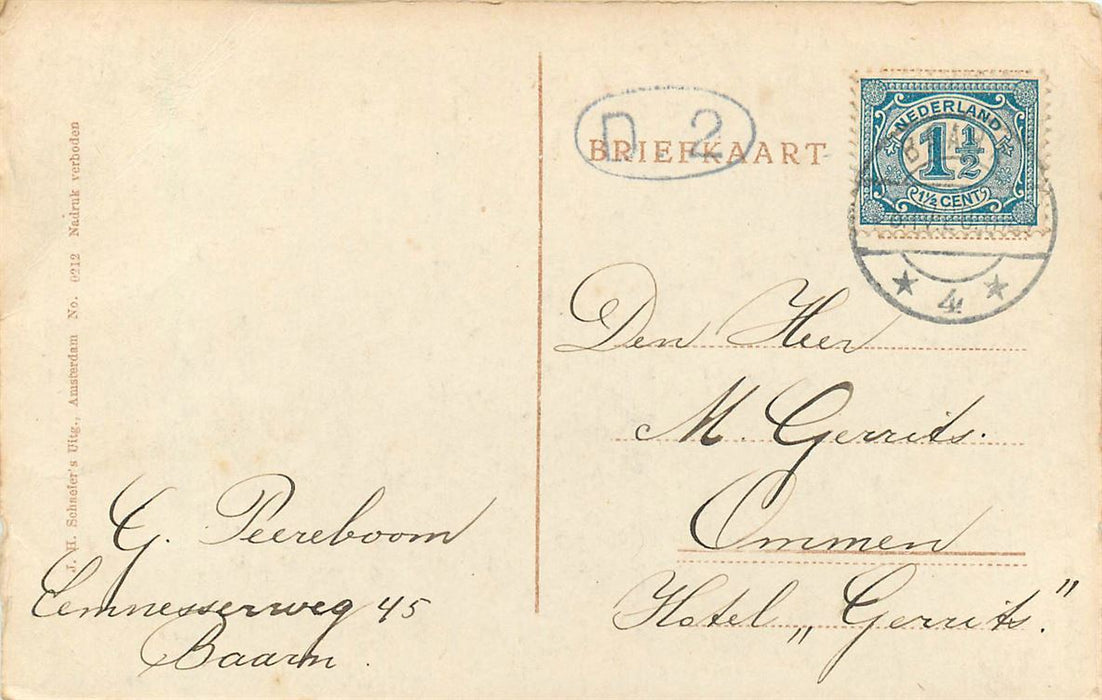 J. H. Schaefer's Uitg., Amsterdam No. 0212 Nadruk verboden
D 2
BRIEFKAART
NEDERLAND
1 1/2
1½ CENT
4
Den Heer
M. Gerrits.
Ommen
Hotel „Gerrits."
G. Peereboom
Eemnesserweg 45
Baarn.